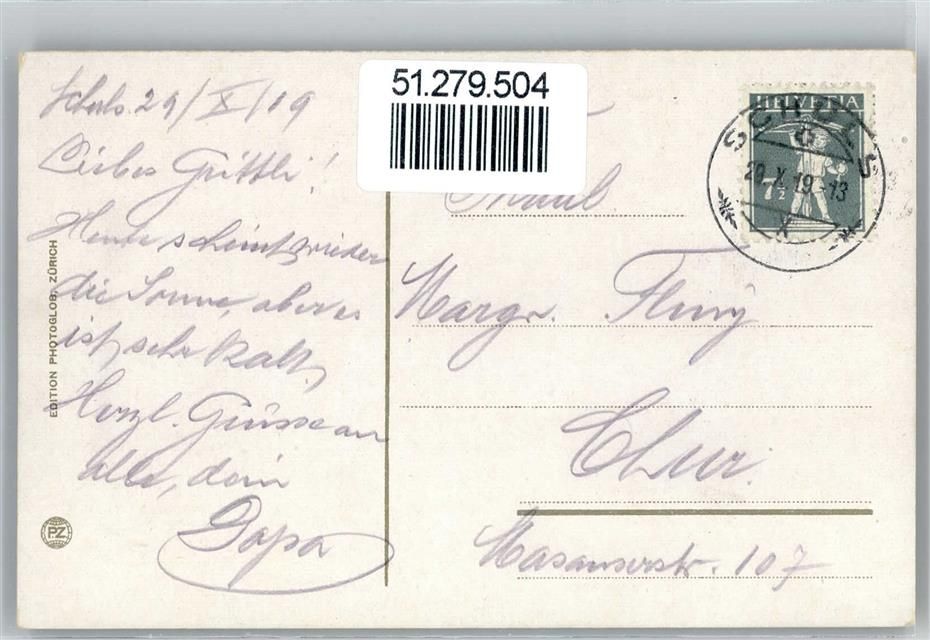 Schuls 29/X/19
Liebes Grittli!
Heute scheint wieder
die Sonne, aber es
ist sehr kalt,
Herzl. Grüsse an
alle, dein
Papa
EDITION PHOTOGLOB, ZÜRICH
P.Z.
51.279.504
HELVETIA
7½
SCHULS
29.X.19-13
X
Margr. Flury
Chur.
Masanserstr. 107